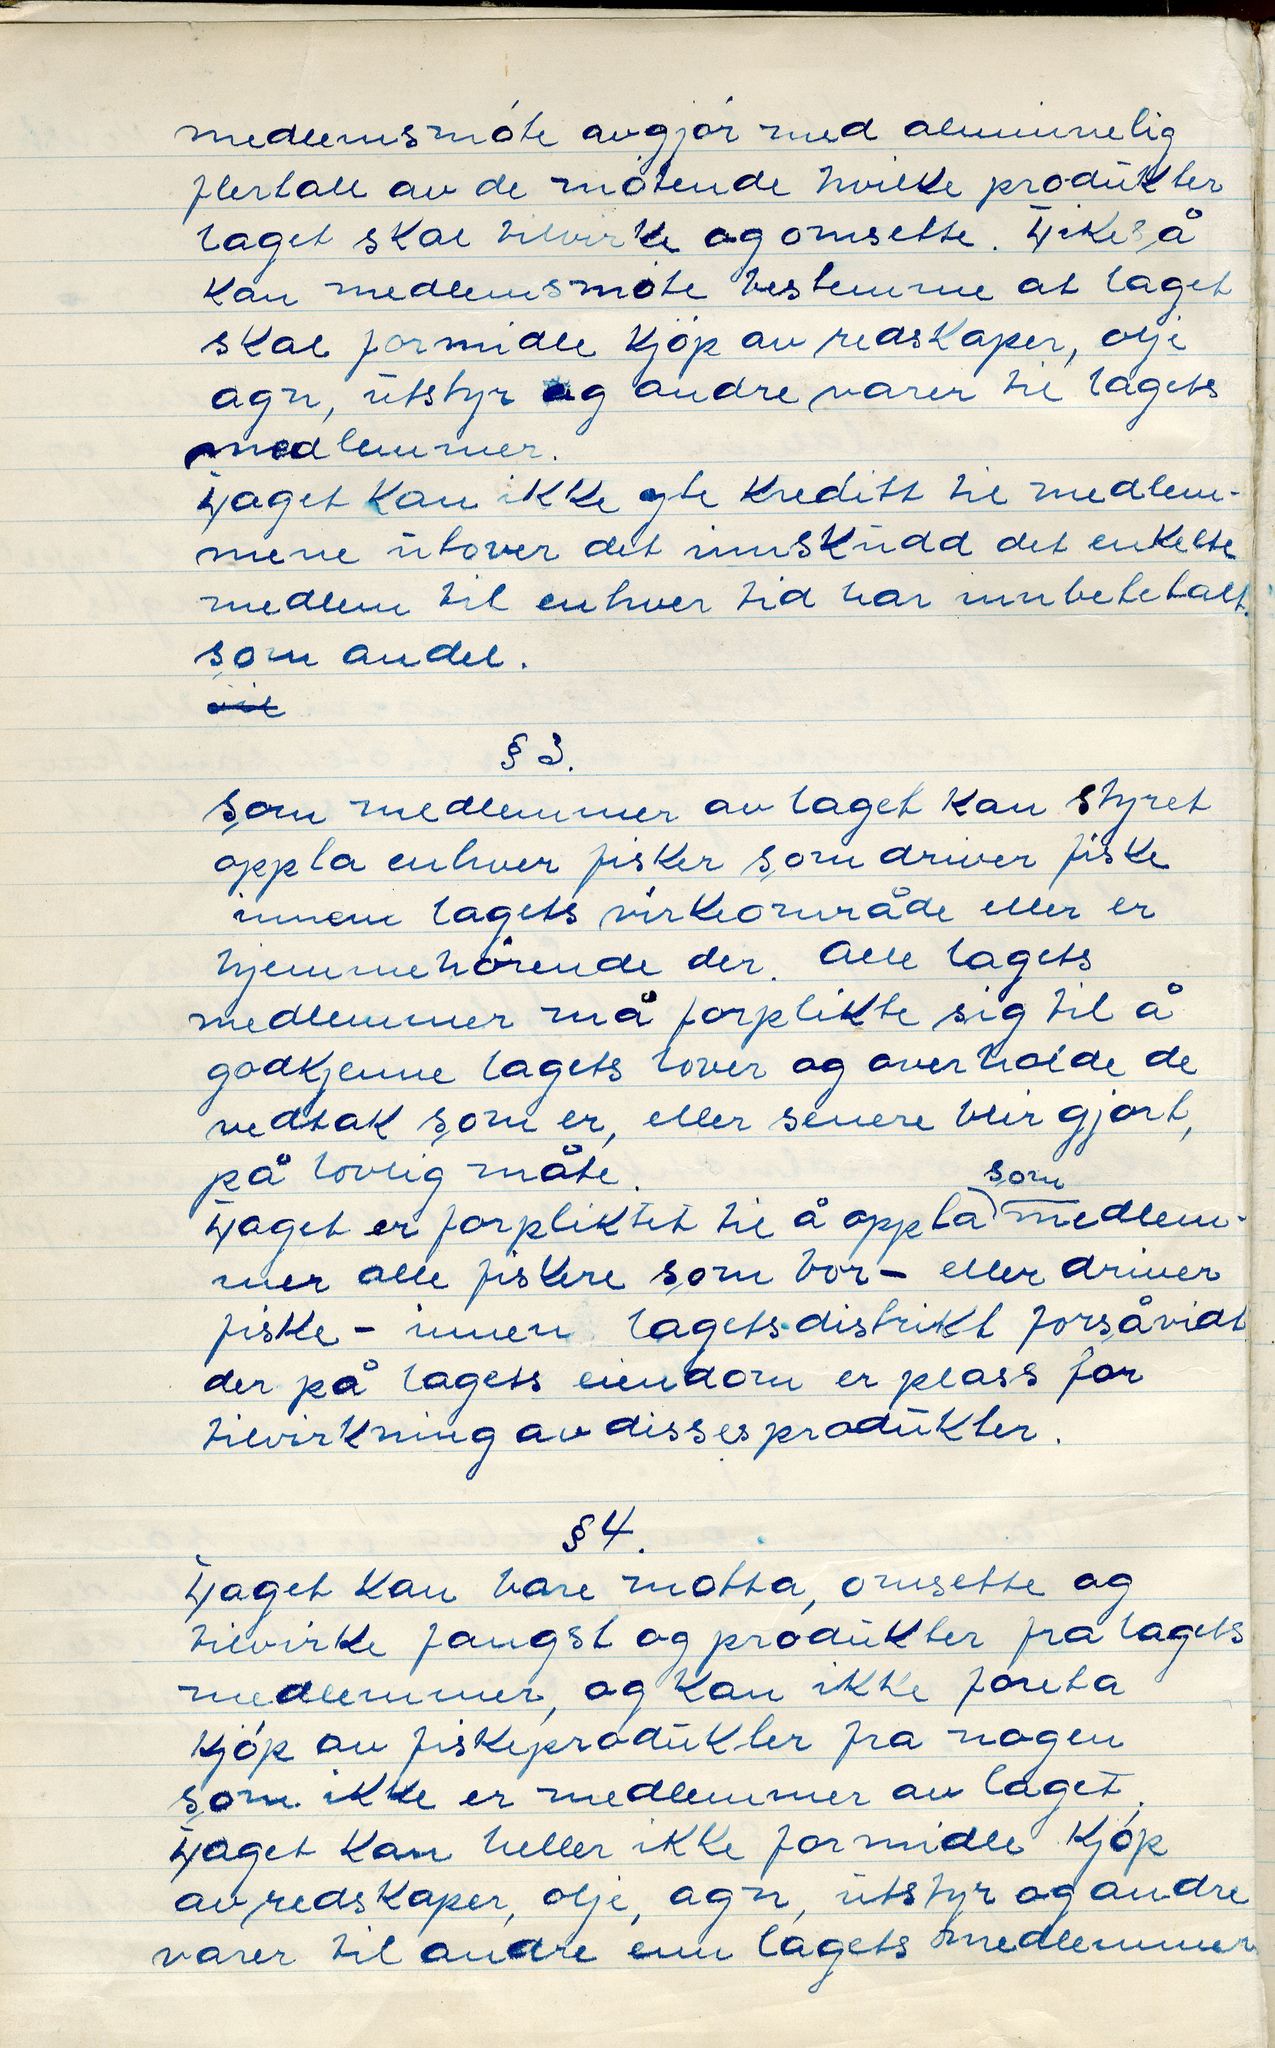 medlemsmöte avgjör med alminnelig
flertall av de mötende hvilke produkter
laget skal tilvirke og omsette. Likeså
kan medlemsmöte bestemme at laget
skal formidle kjöp av redskaper, olje
agn, utstyr og andre varer til lagets
medlemmer.
Laget kan ikke yte kreditt til medlem-
mene utover det innskudd det enkelte
medlem til enhver tid har innbetetalt
som andel.
vil
§ 3.
Som medlemmer av laget kan styret
oppta enhver fisker som driver fiske
innen lagets virkeområde eller er
hjemmehörende der. Alle lagets
medlemmer må forplikte sig til å
godkjenne lagets lover og overholde de
vedtak som er, eller senere blir gjort,
på lovlig måte.
som
Laget er forpliktet til å oppta medlem-
mer alle fiskere som bor - eller driver
fiske - innen lagets distrikt forsåvidt
der på lagets eiendom er plass for
tilvirkning av disses produkter.
§ 4.
Laget kan bare motta, omsette og
tilvirke fangst og produkter fra lagets
medlemmer, og kan ikke foreta
kjöp av fiskeprodukter fra nogen
som ikke er medlemmer av laget.
Laget kan heller ikke formidle kjöp
av redskaper, olje, agn, utstyr og andre
varer til andre enn lagets medlemmer